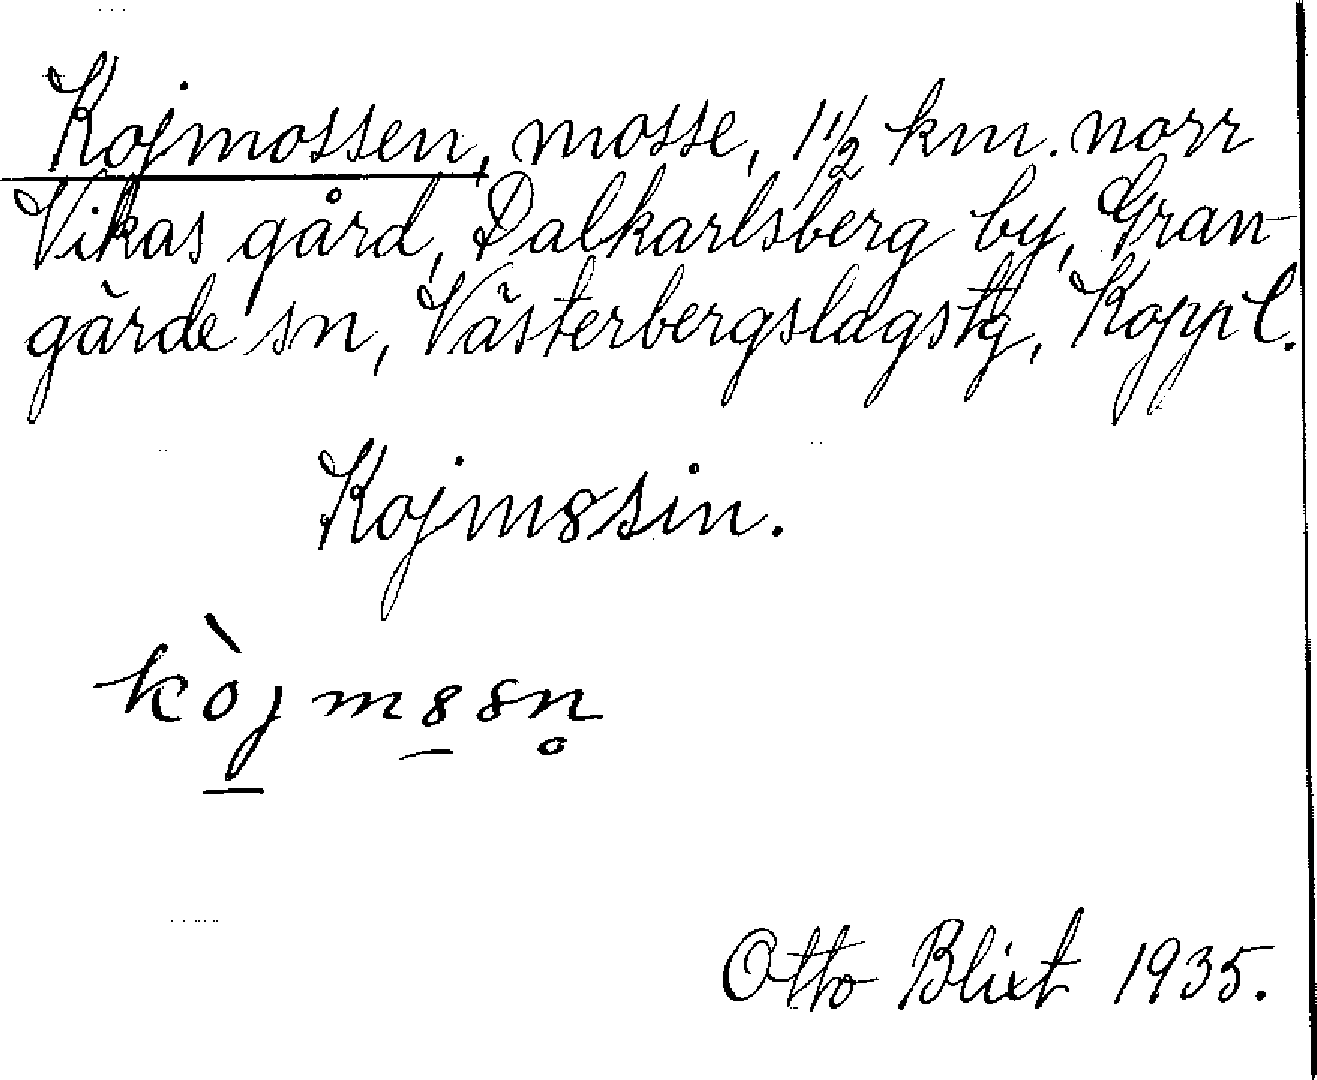 Kojmossen, mosse, 1 1/2 km. norr
Vikas gård, Dalkarlsberg by, Gran-
gärde sn, Västerbergslags tg, Kopp l.
Kojm8sin.
kòjm8sn̥
Otto Blixt 1935.